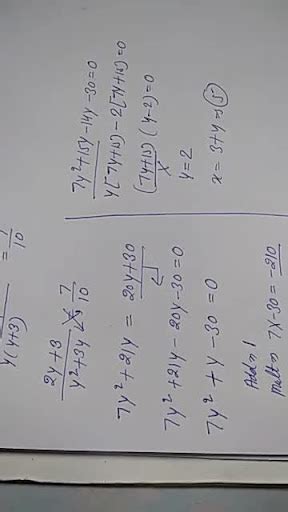 y(y+3) = 7/10
2y+3 / y²+3y = 7/10
7y²+21y = 20y+30
7y²+21y-20y-30=0
7y²+y-30=0
Add → 1
Mult → 7x-30=-210
7y²+15y-14y-30=0
y[7y+15)-2[7y+15)=0
(7y+15)(y-2)=0
x
y=2
x=3+y → 5